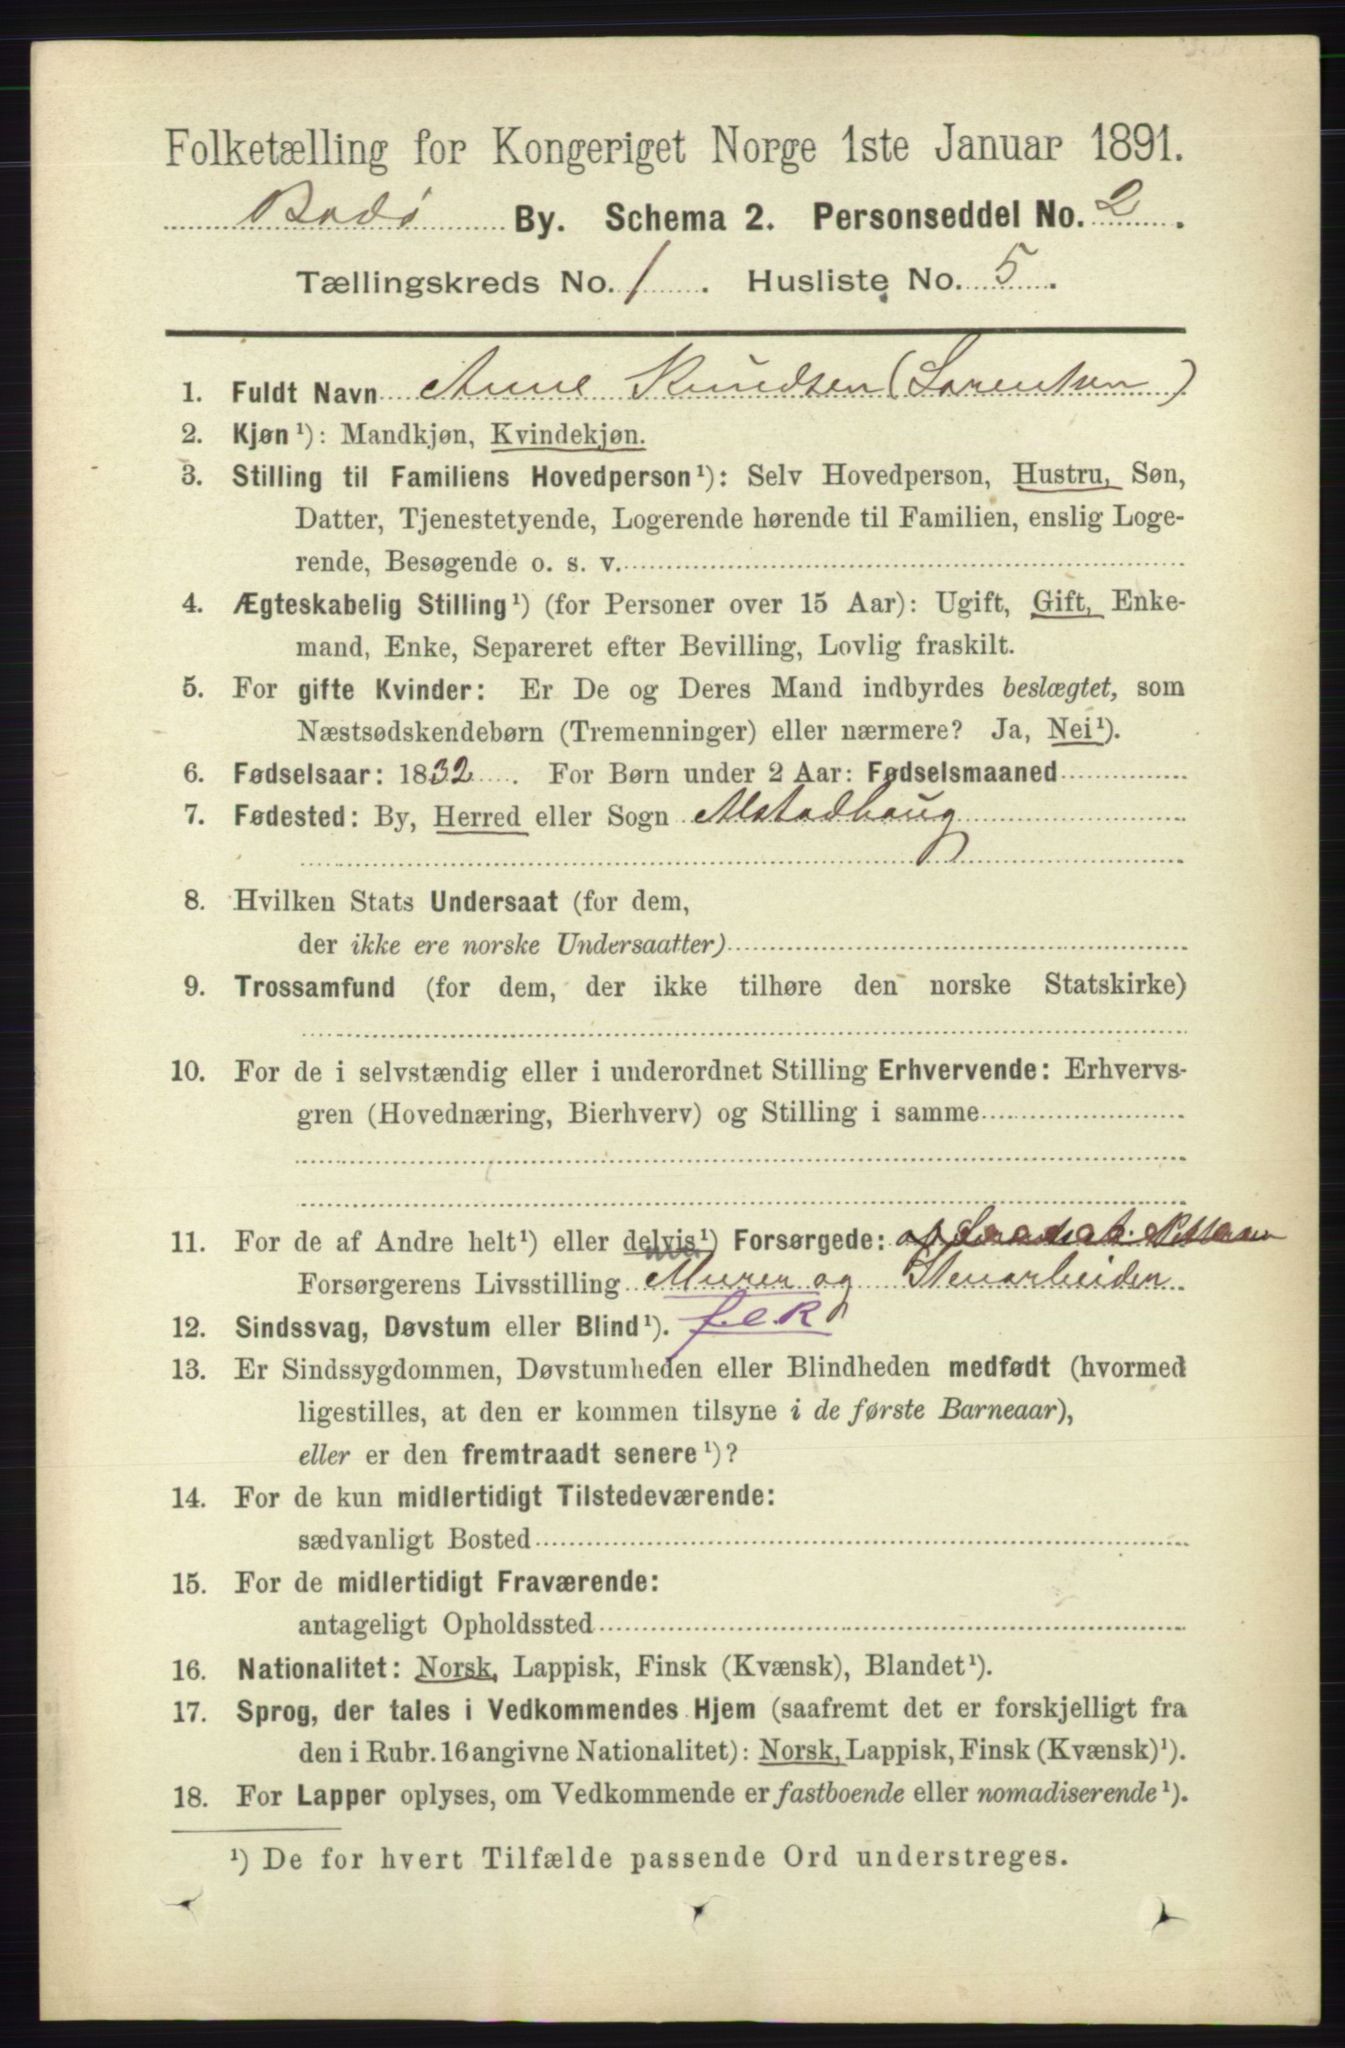 Folketælling for Kongeriget Norge 1ste Januar 1891.
Bodø By. Schema 2. Personseddel No. 2.
Tællingskreds No. 1. Husliste No. 5.
1. Fuldt Navn Anne Knudsen (Sorentsen)
2. Kjøn¹): Mandkjøn, Kvindekjøn.
3. Stilling til Familiens Hovedperson¹): Selv Hovedperson, Hustru, Søn,
Datter, Tjenestetyende, Logerende hørende til Familien, enslig Loge-
rende, Besøgende o. s. v.
4. Ægteskabelig Stilling¹) (for Personer over 15 Aar): Ugift, Gift, Enke-
mand, Enke, Separeret efter Bevilling, Lovlig fraskilt.
5. For gifte Kvinder: Er De og Deres Mand indbyrdes beslægtet, som
Næstsødskendebørn (Tremenninger) eller nærmere? Ja, Nei¹).
6. Fødselsaar: 1832. For Børn under 2 Aar: Fødselsmaaned
7. Fødested: By, Herred eller Sogn Alstadhaug
8. Hvilken Stats Undersaat (for dem,
der ikke ere norske Undersaatter)
9. Trossamfund (for dem, der ikke tilhøre den norske Statskirke)
10. For de i selvstændig eller i underordnet Stilling Erhvervende: Erhvervs-
gren (Hovednæring, Bierhverv) og Stilling i samme
11. For de af Andre helt¹) eller delvis¹) Forsørgede:
Forsørgerens Livsstilling Murer og Stenarbeider
12. Sindssvag, Døvstum eller Blind¹). f.e.R
13. Er Sindssygdommen, Døvstumheden eller Blindheden medfødt (hvormed
ligestilles, at den er kommen tilsyne i de første Barneaar),
eller er den fremtraadt senere¹)?
14. For de kun midlertidigt Tilstedeværende:
sædvanligt Bosted
15. For de midlertidigt Fraværende:
antageligt Opholdssted
16. Nationalitet: Norsk, Lappisk, Finsk (Kvænsk), Blandet¹).
17. Sprog, der tales i Vedkommendes Hjem (saafremt det er forskjelligt fra
den i Rubr. 16 angivne Nationalitet): Norsk, Lappisk, Finsk (Kvænsk)¹).
18. For Lapper oplyses, om Vedkommende er fastboende eller nomadiserende¹).
¹) De for hvert Tilfælde passende Ord understreges.